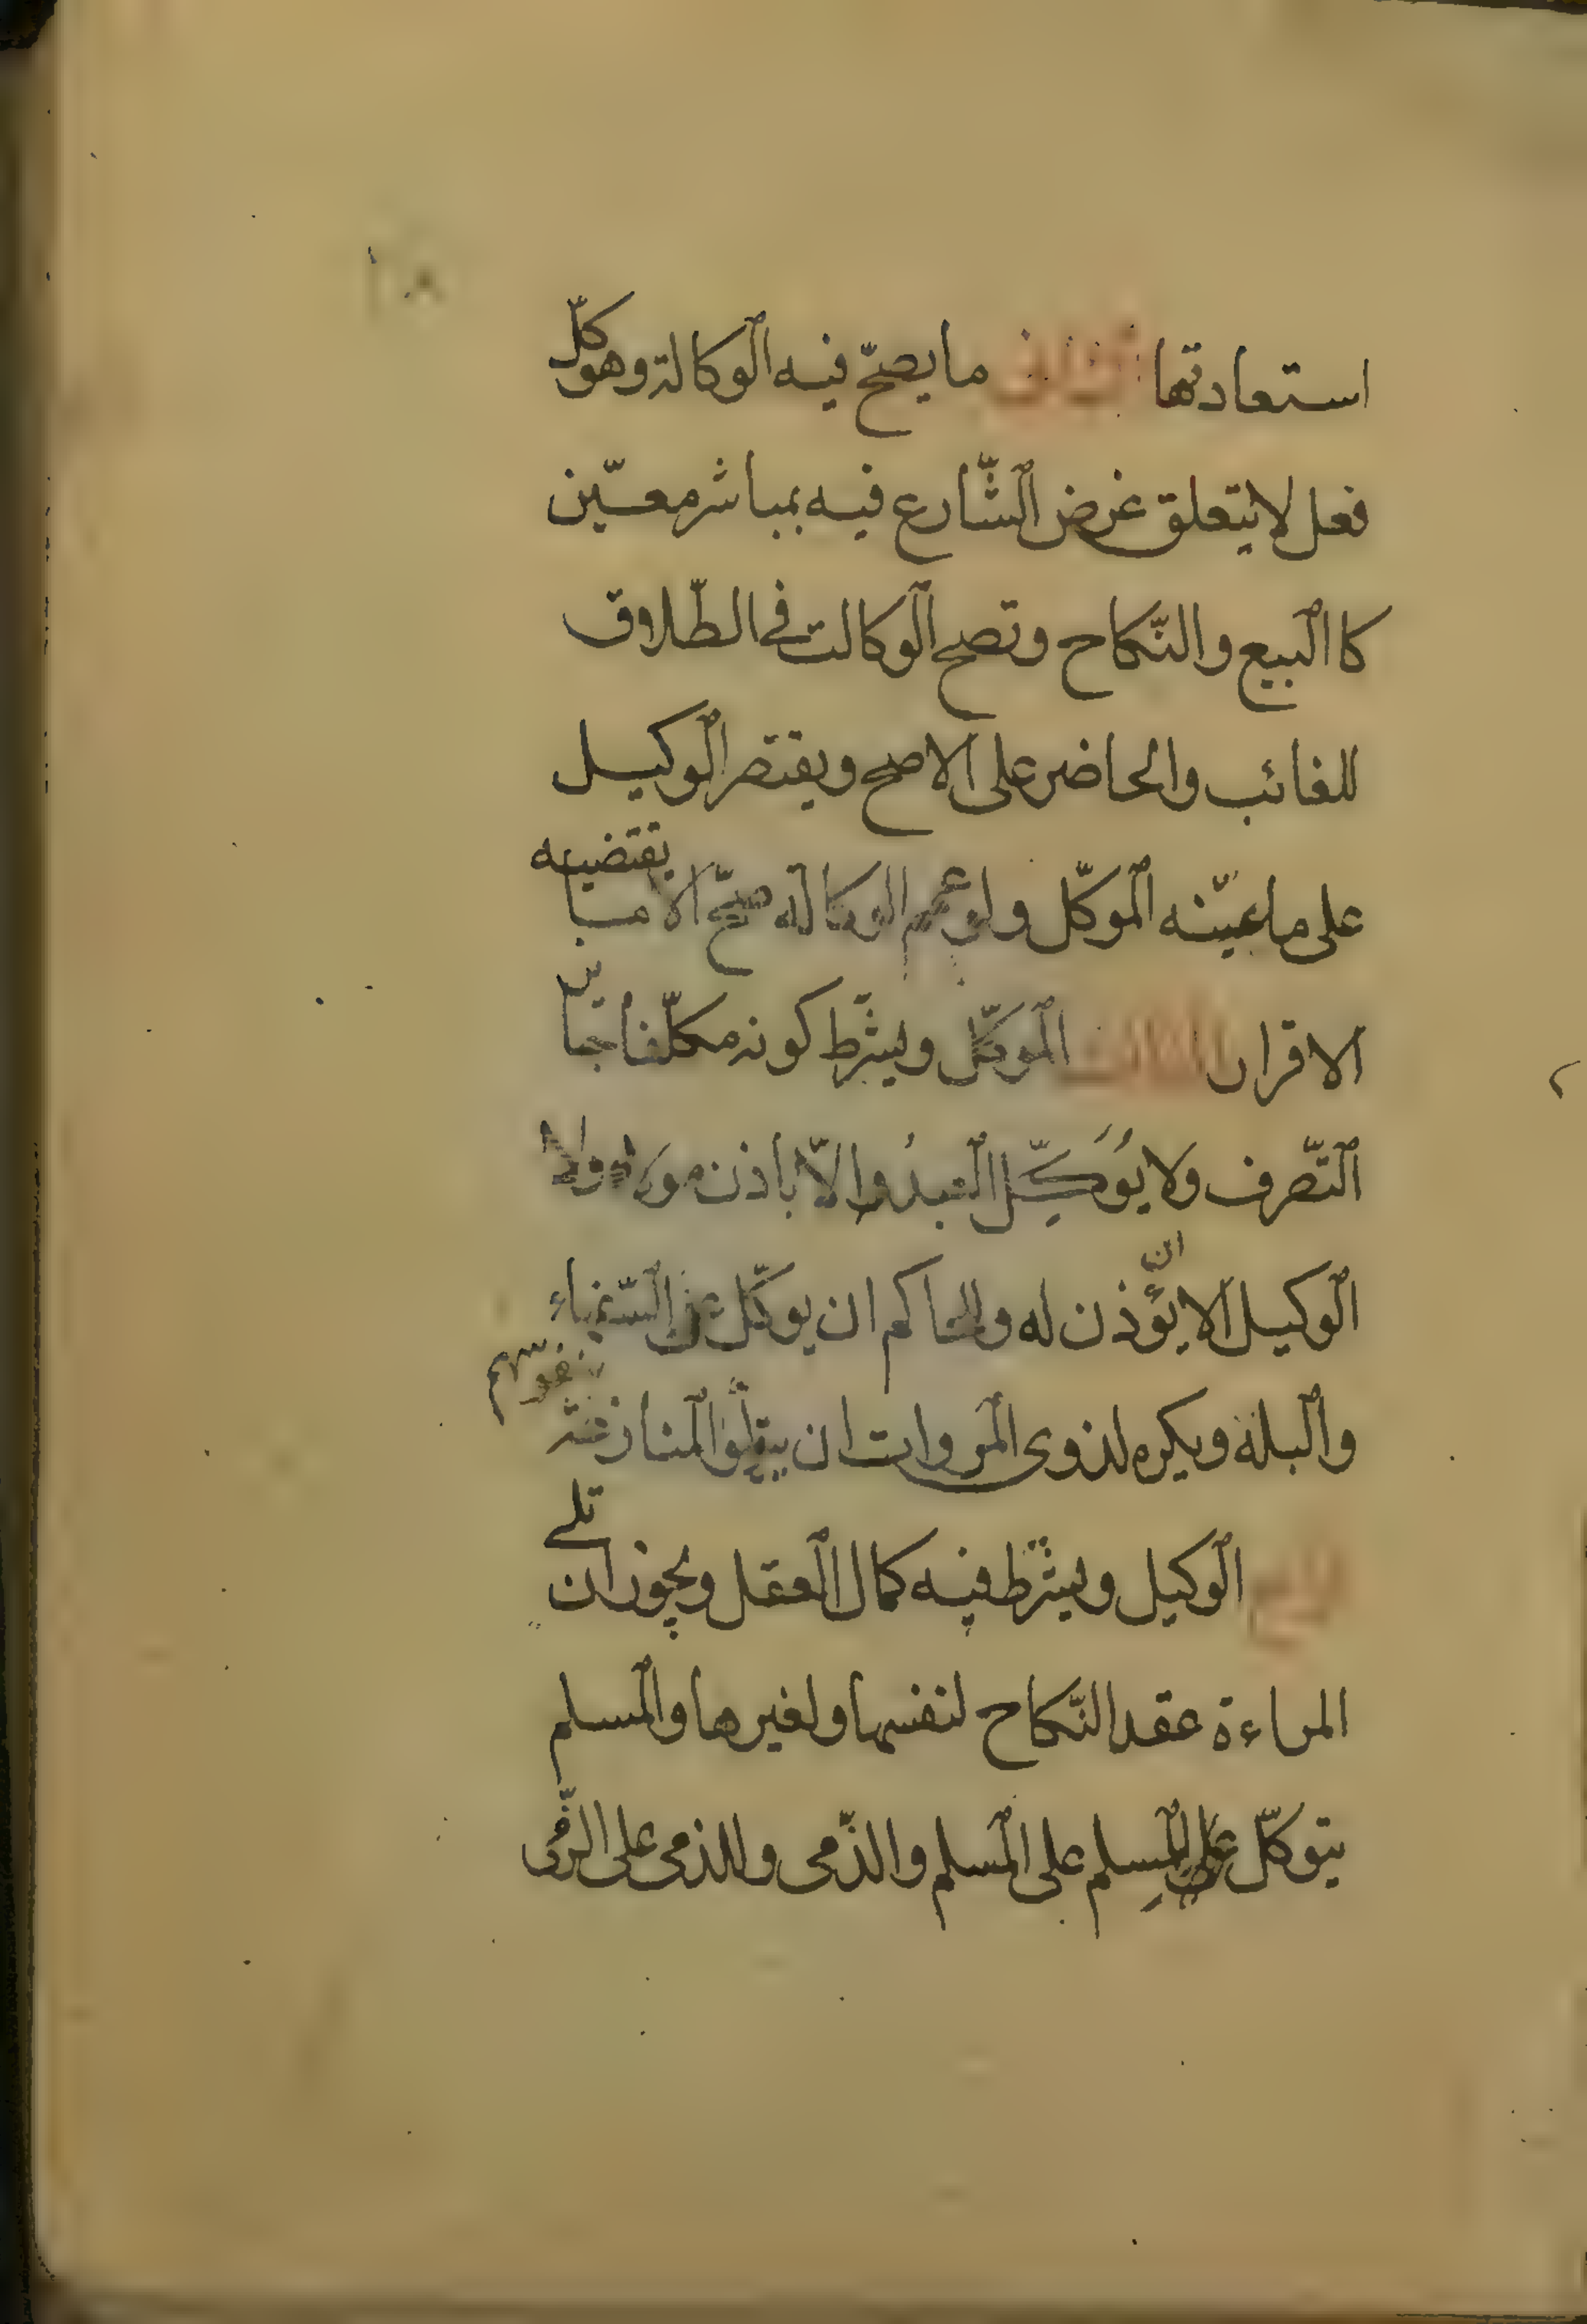 استعادتها الثانی ما یصحّ فیه الوکالة وهو کلّ
فعل لا یتعلق غرض الشّارع فیه بمباشر معیّن
کا البیع والنّکاح وتصح الوکالت فی الطّلاق
للغائب والحاضر علی الاصح ویقتصر الوکیل
علی ما عیّنه الموکّل ولو عمم الوکالة صحّ الا ما یقتضیه
الاقرار الثالث الموکّل ویشترط کونه مکلّفا جایز
التّصرف ولا یُوَکِّل العبدُ الّا باذن مولاه ولا
الوکیل الا ان یُؤذن له وللحاکم ان یوکّل عن السّفهاء
والبله ویکره لذوی المروات ان یتولّوا المنازعة بنفوسهم
الرابع الوکیل ویشترط فیه کمال العقل ویجوز ان تلی
المراءة عقد النّکاح لنفسها ولغیرها والمسلم
یتوکّل للمسلم علی المسلم والذّمی وللذمی علی الذّمی